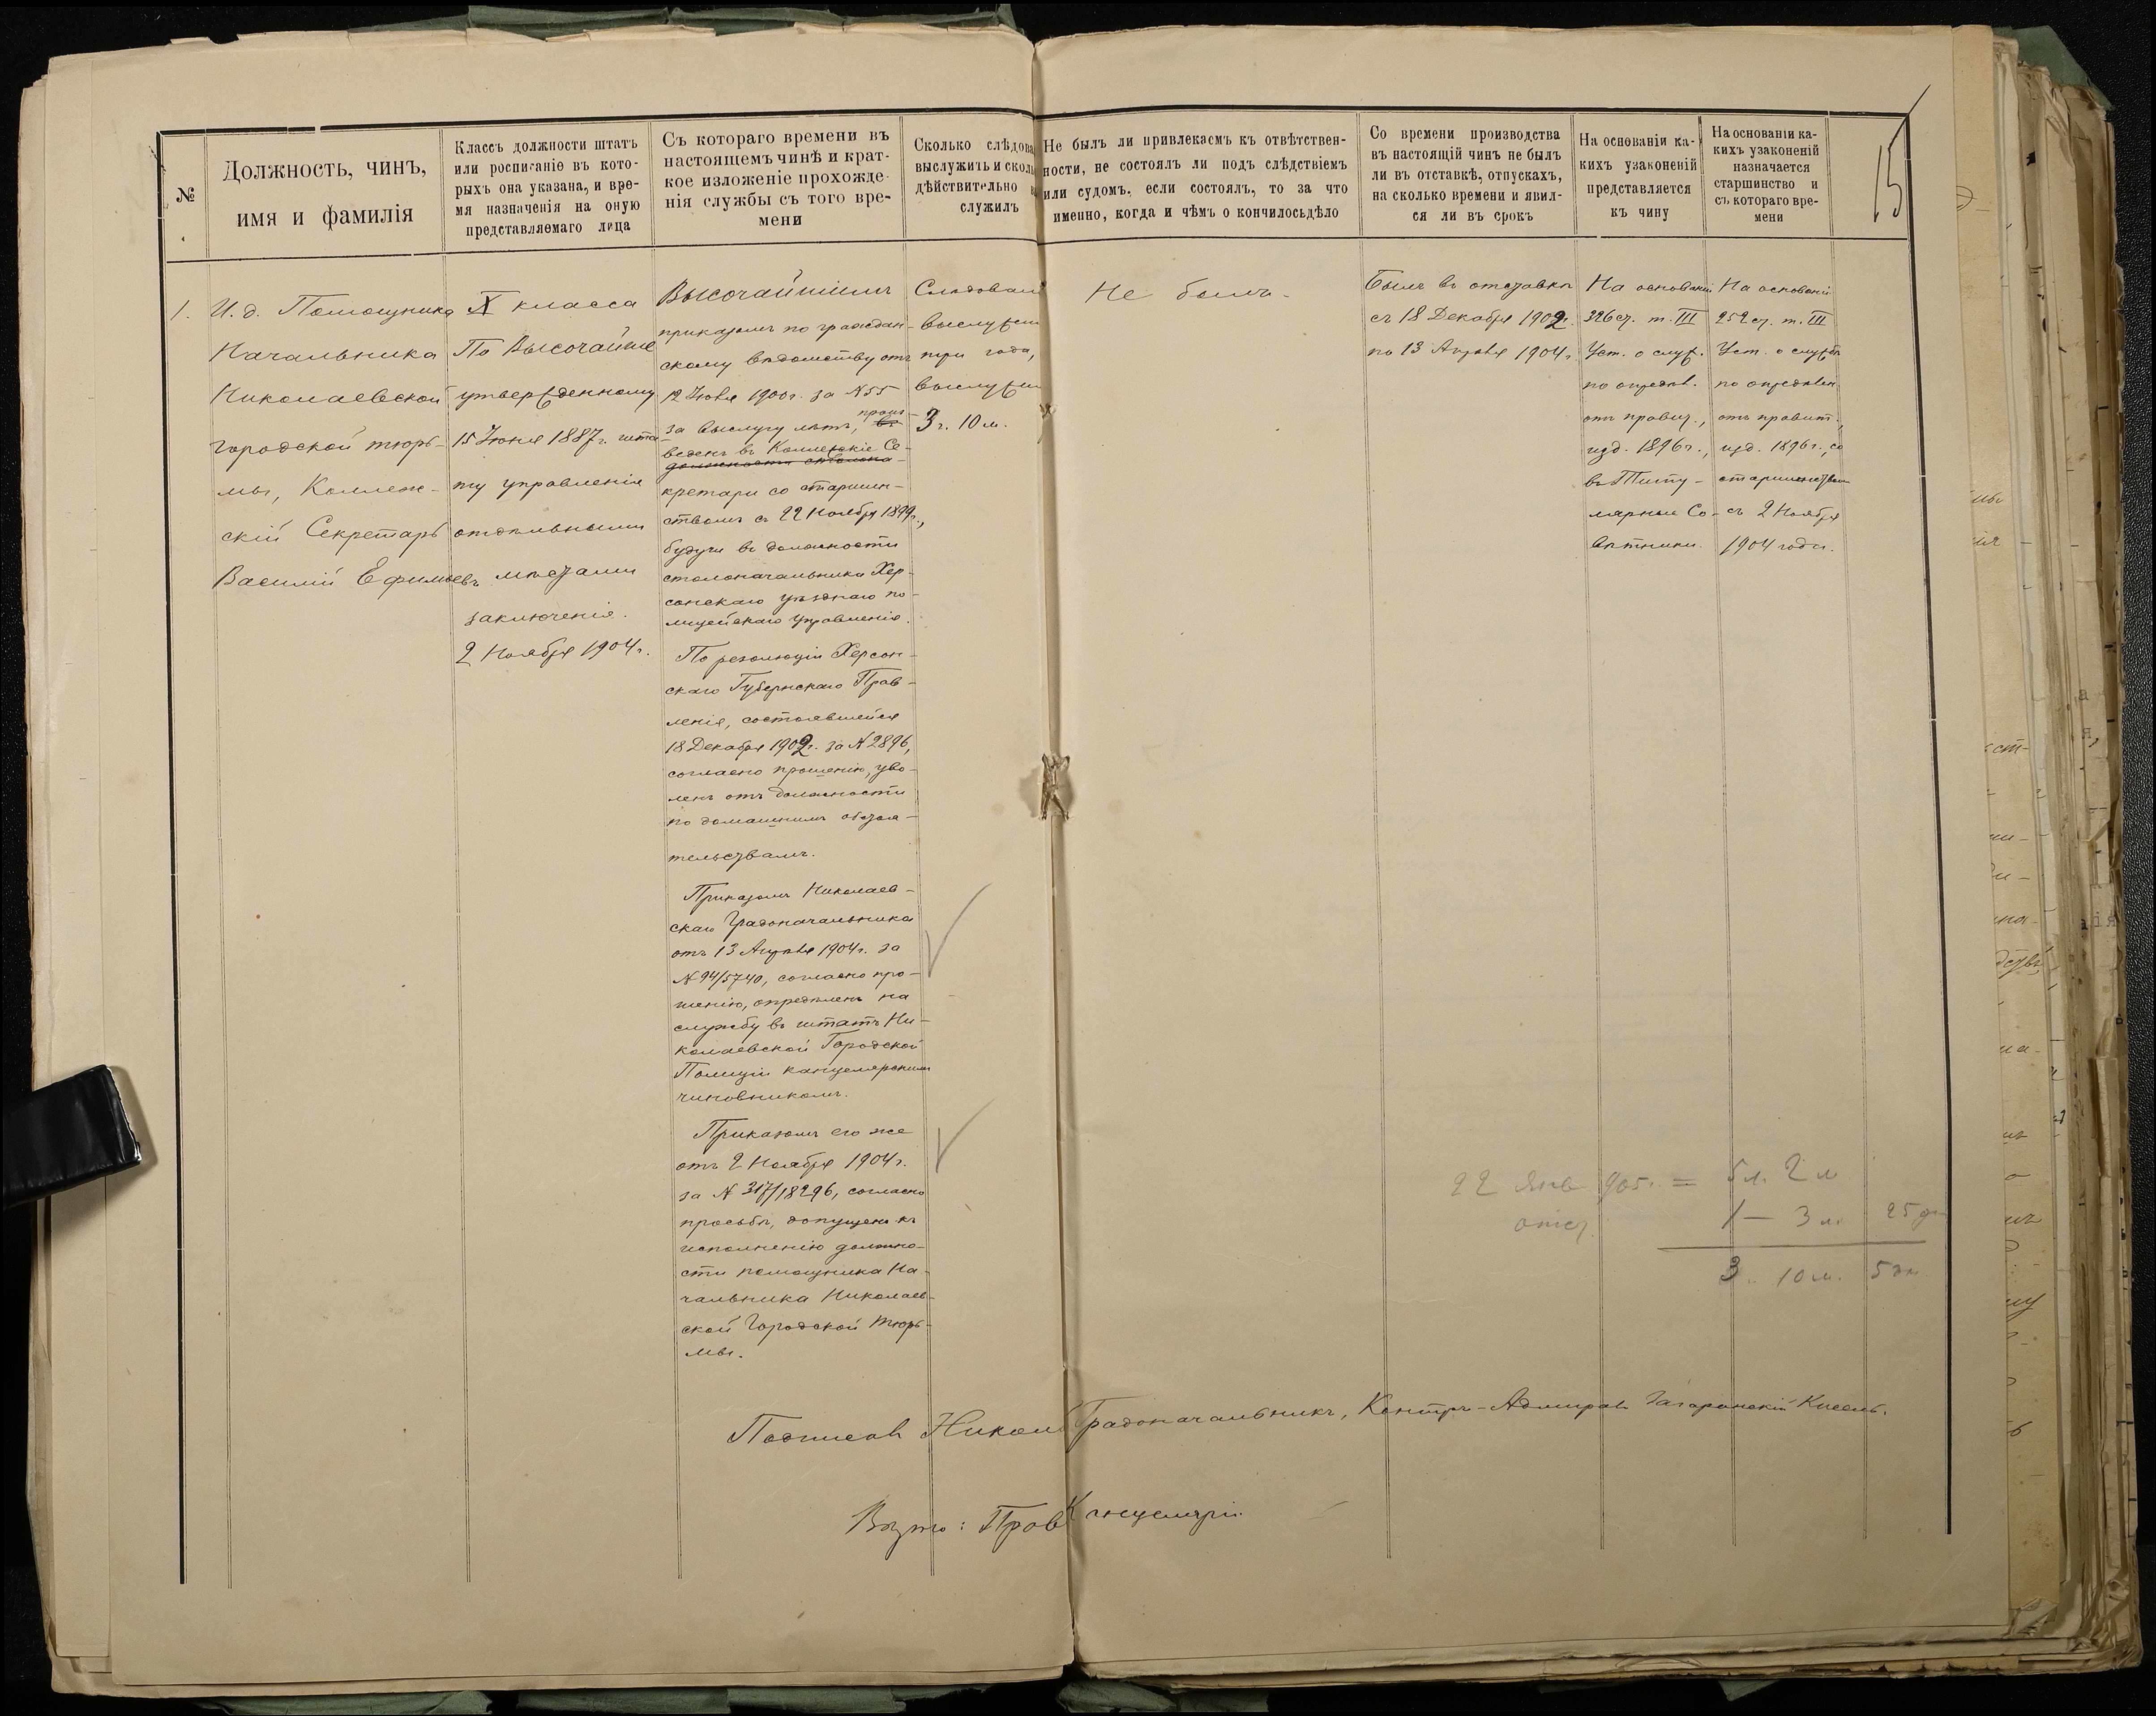 15
№
Должность, чинъ,
имя и фамилія
Классъ должности штатъ
или росписаніе въ кото-
рыхъ она указана, и вре-
мя назначенія на оную
представляемаго лица
Съ котораго времени въ
настоящемъ чинѣ и крат-
кое изложеніе прохожде-
нія службы съ того вре-
мени
Сколько слѣдова
выслужить и сколь
дѣйствительно в
служилъ
Не былъ ли привлекаемъ къ отвѣтствен-
ности, не состоялъ ли подъ слѣдствіемъ
или судомъ, если состоялъ, то за что
именно, когда и чѣмъ о кончилосьдѣло
Со времени производства
въ настоящій чинъ не былъ
ли въ отставкѣ, отпускахъ,
на сколько времени и явил-
ся ли въ срокъ
На основаніи ка-
кихъ узаконеній
представляется
къ чину
На основаніи ка-
кихъ узаконеній
назначается
старшинство и
съ котораго вре-
мени
1.
И. д. Помощника
Начальника
Николаевской
городской тюрь-
мы, Коллеж-
скій Секретарь
Василій Ефимьевъ
X класса
По Высочайше
утвержденному
15 Іюня 1887 г. шта-
ту управленія
отдѣльными
мѣстами
заключенія.
2 Ноября 1904 г.
Высочайшимъ
приказомъ по граждан-
скому вѣдомству отъ
12 Іюля 1900 г. за № 55
за выслугу лѣтъ, произ-
веденъ въ Коллежскіе Се-
кретари со старшин-
ствомъ съ 22 Ноября 1899 г.,
будучи въ должности
столоначальника Хер-
сонскаго уѣзднаго по-
лицейскаго управленія.
По резолюціи Херсон-
скаго Губернскаго Прав-
ленія, состоявшейся
18 Декабря 1902 г. за № 2896,
согласно прошенію, уво-
ленъ отъ должности
по домашнимъ обстоя-
тельствамъ.
Приказомъ Николаев-
скаго Градоначальника
отъ 13 Апрѣля 1904 г. за
№ 94/5740, согласно про-
шенію, опредѣленъ на
службу въ штатъ Ни-
колаевской Городской
Полиціи канцелярскимъ
чиновникомъ.
Приказомъ его же
отъ 2 Ноября 1904 г.
за № 317/18296, согласно
просьбы, допущенъ къ
исполненію должно-
сти помощника На-
чальника Николаев-
ской Городской тюрь-
мы.
Слѣдовало
выслужить
три года,
выслужилъ
3 г. 10 м.
Не былъ.
Былъ въ отставкѣ
съ 18 Декабря 1902 г.
по 13 Апрѣля 1904 г.
На основаніи
326 ст. т. III
Уст. о служ.
по опредѣл.
отъ правит.,
изд. 1896 г.,
въ Титу-
лярные Со-
вѣтники.
На основаніи
252 ст. т. III
Уст. о службѣ
по опредѣлен.
отъ правит.,
изд. 1896 г., со
старшинствомъ
съ 2 Ноября
1904 года.
22 Янв 905 г. = 5 л. 2 м
отст. 1 — 3 м. 25 дн
3 10 м. 5 дн
Подписалъ Никол Градоначальникъ, Контръ-Адмиралъ Загорянскій-Кисель.
Вѣрно: Прав Канцеляріи